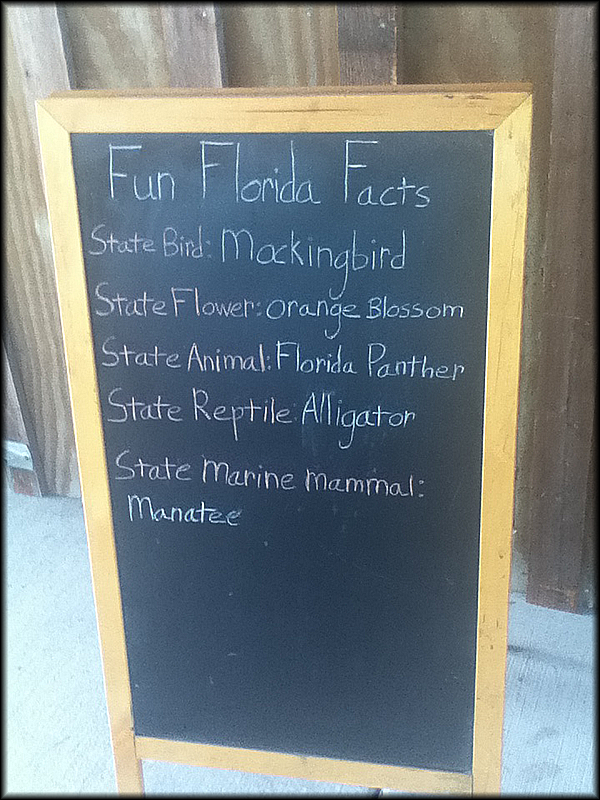 Fun Florida Facts
State Bird: Mockingbird
State Flower: Orange Blossom
State Animal: Florida Panther
State Reptile: Alligator
State Marine Mammal:
Manatee